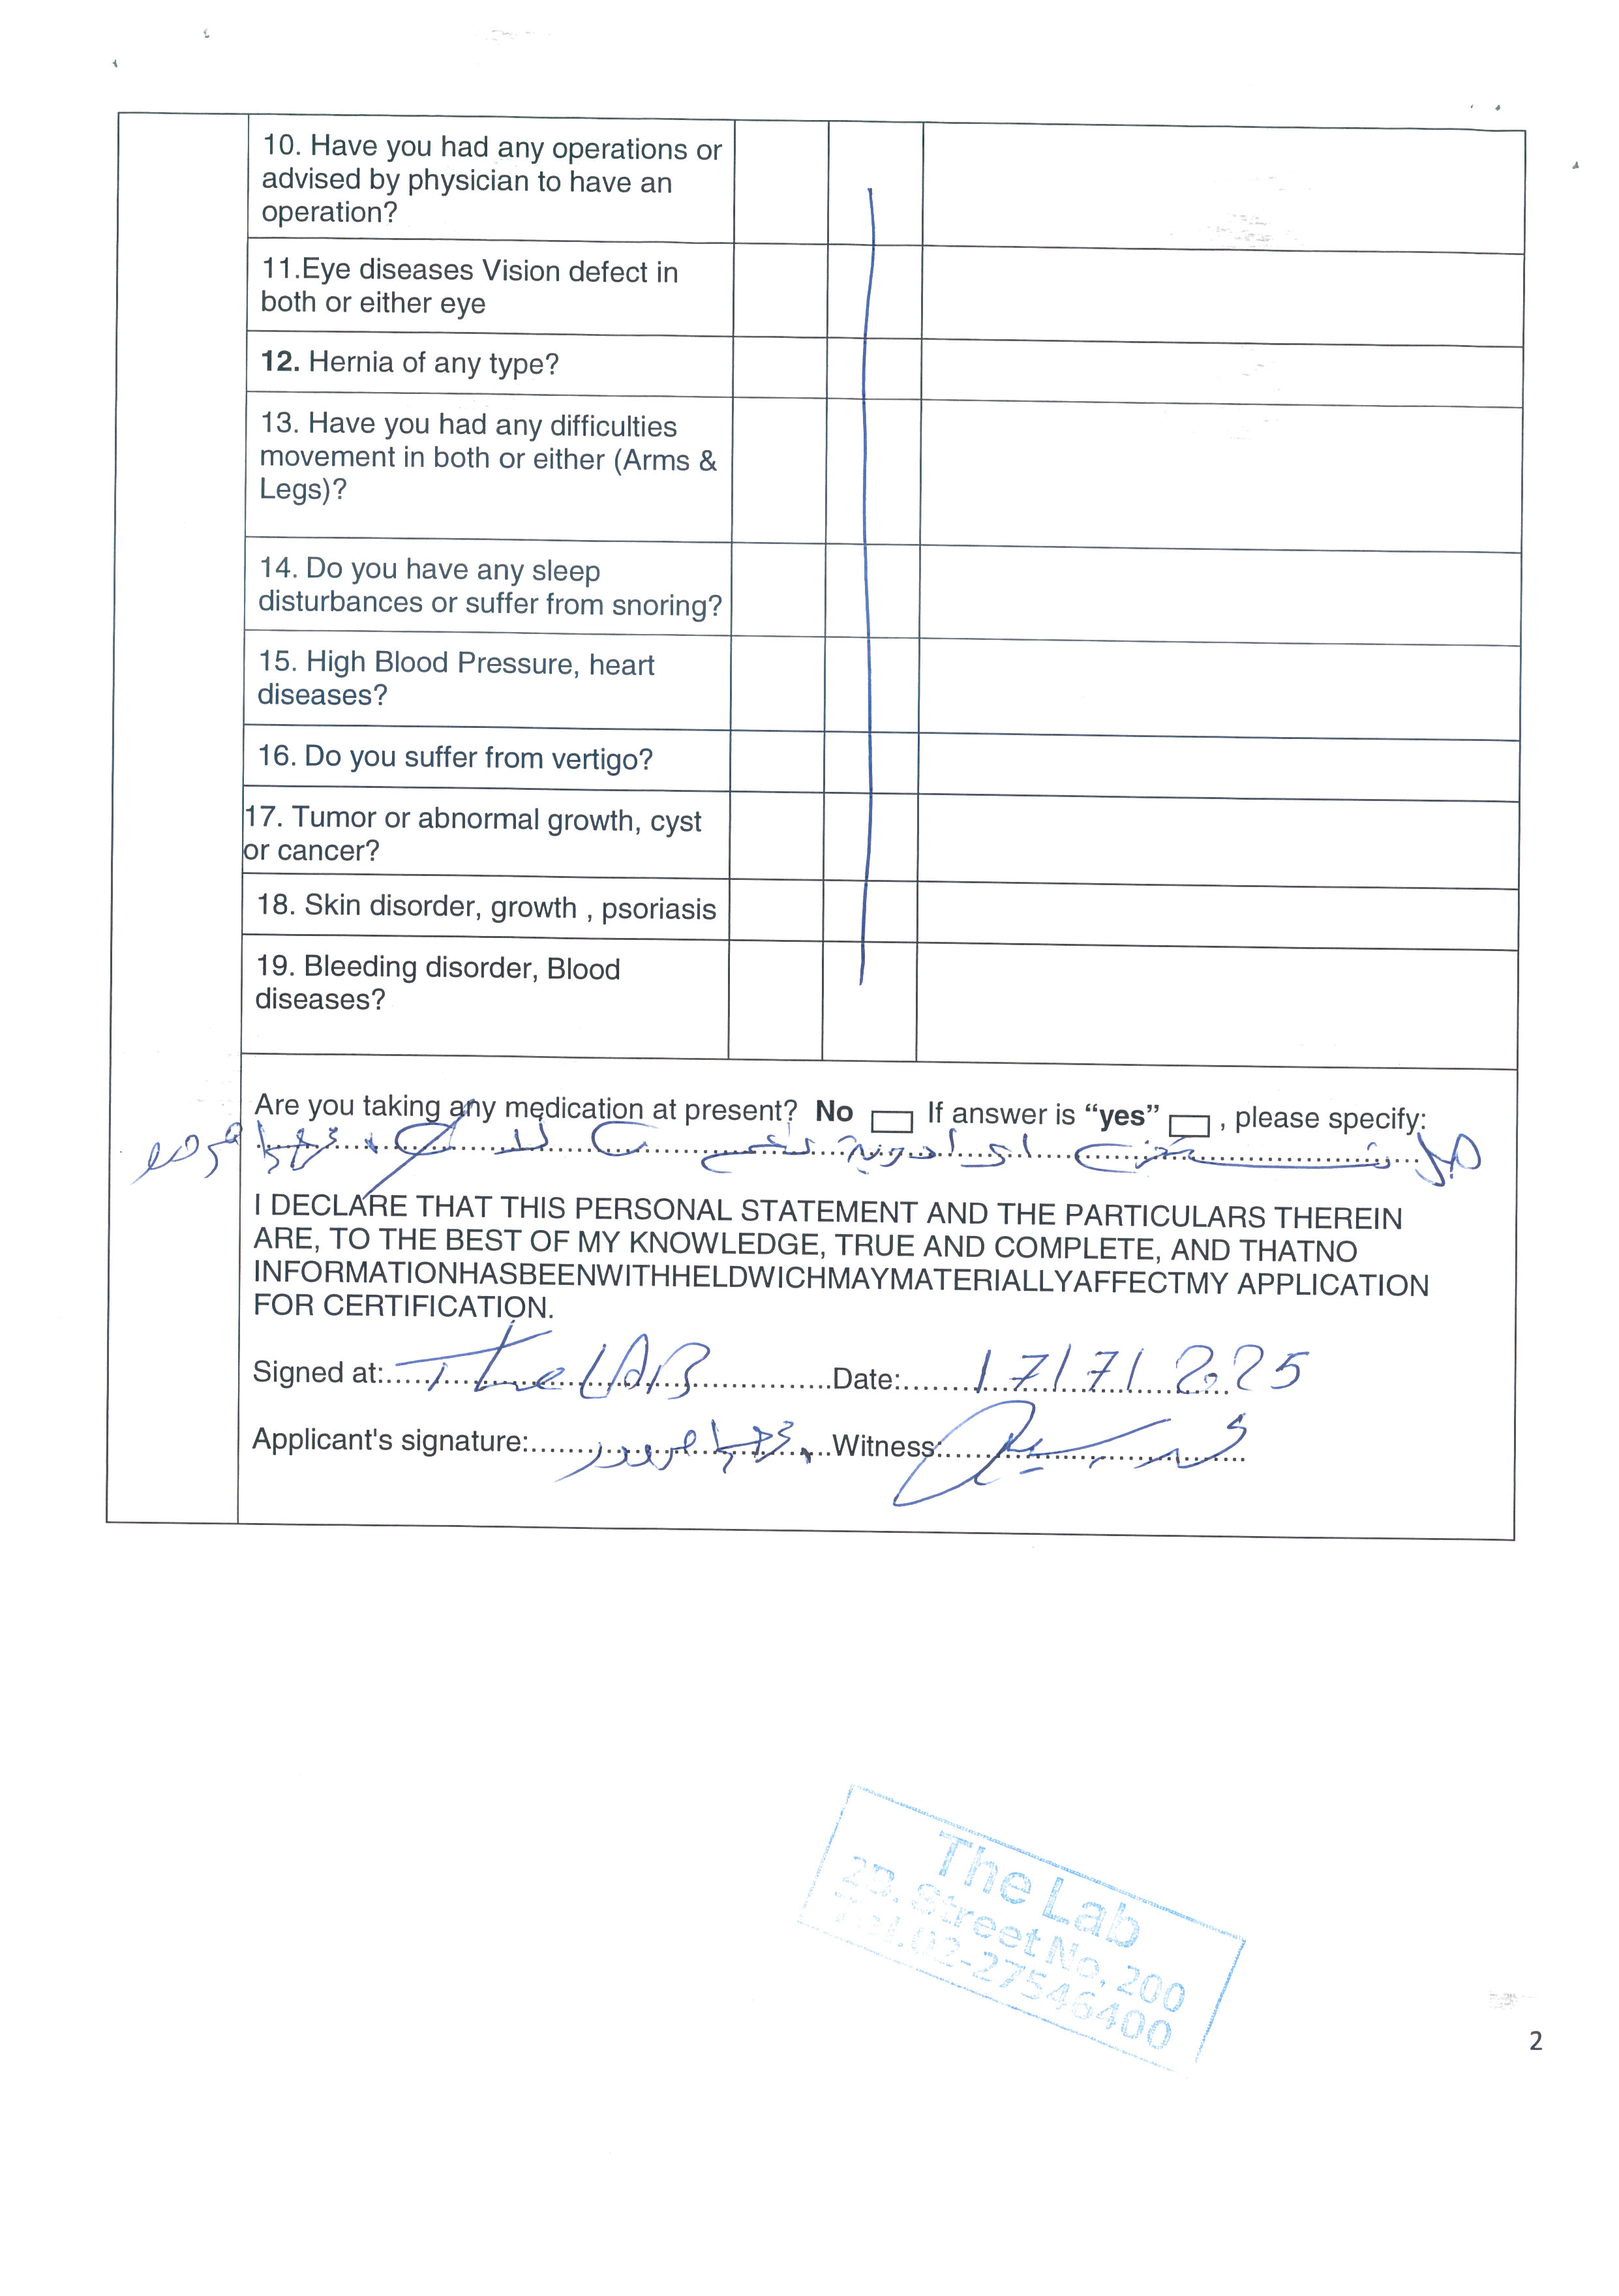 10. Have you had any operations or
advised by physician to have an
operation?
11.Eye diseases Vision defect in
both or either eye
12. Hernia of any type?
13. Have you had any difficulties
movement in both or either (Arms &
Legs)?
14. Do you have any sleep
disturbances or suffer from snoring?
15. High Blood Pressure, heart
diseases?
16. Do you suffer from vertigo?
17. Tumor or abnormal growth, cyst
or cancer?
18. Skin disorder, growth , psoriasis
19. Bleeding disorder, Blood
diseases?
Are you taking any medication at present? No If answer is “yes” , please specify:
هل اي ادوية
I DECLARE THAT THIS PERSONAL STATEMENT AND THE PARTICULARS THEREIN
ARE, TO THE BEST OF MY KNOWLEDGE, TRUE AND COMPLETE, AND THATNO
INFORMATIONHASBEENWITHHELDWICHMAYMATERIALLYAFFECTMY APPLICATION
FOR CERTIFICATION.
Signed at: The LAB Date: 17/7/2025
Applicant's signature: Witness:
The Lab
2B, Street No, 200
Tel.02-27546400
2